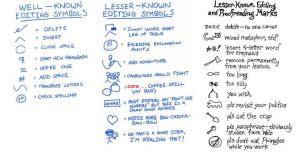 WELL-KNOWN
EDITING SYMBOLS
= DELETE
= INSERT
= CLOSE SPACE
= START NEW PARAGRAPH
= UPPER CASE
= ADD SPACE
= TRANSPOSE LETTERS
= CHECK SPELLING
LESSER-KNOWN
EDITING SYMBOLS
= INSERT LOWER PART
LEG OF TABLE
= EXCESSIVE EXCLAMATION
POINTS
= ADJUST ANTENNAE
= CHARACTERS SHOULD FIGHT
= OOPS. COFFEE SPILL
(MY BAD)
= NEEDS MORE BOW-CHICKA-
BOW-BOW
= OH THAT'S A GOOD IDEA,
I'M STEALING THAT!
Lesser-Known Editing
and Proofreading Marks
delete—no one cares
mixed metaphor, eh?
insert 4-letter word
for emphasis
remove permanently
from your lexicon.
too long
too silly
pls revisit your politics
pls cut the crap
pls paraphrase—obviously
stolen from web
pls don't eat Pringles
while you write